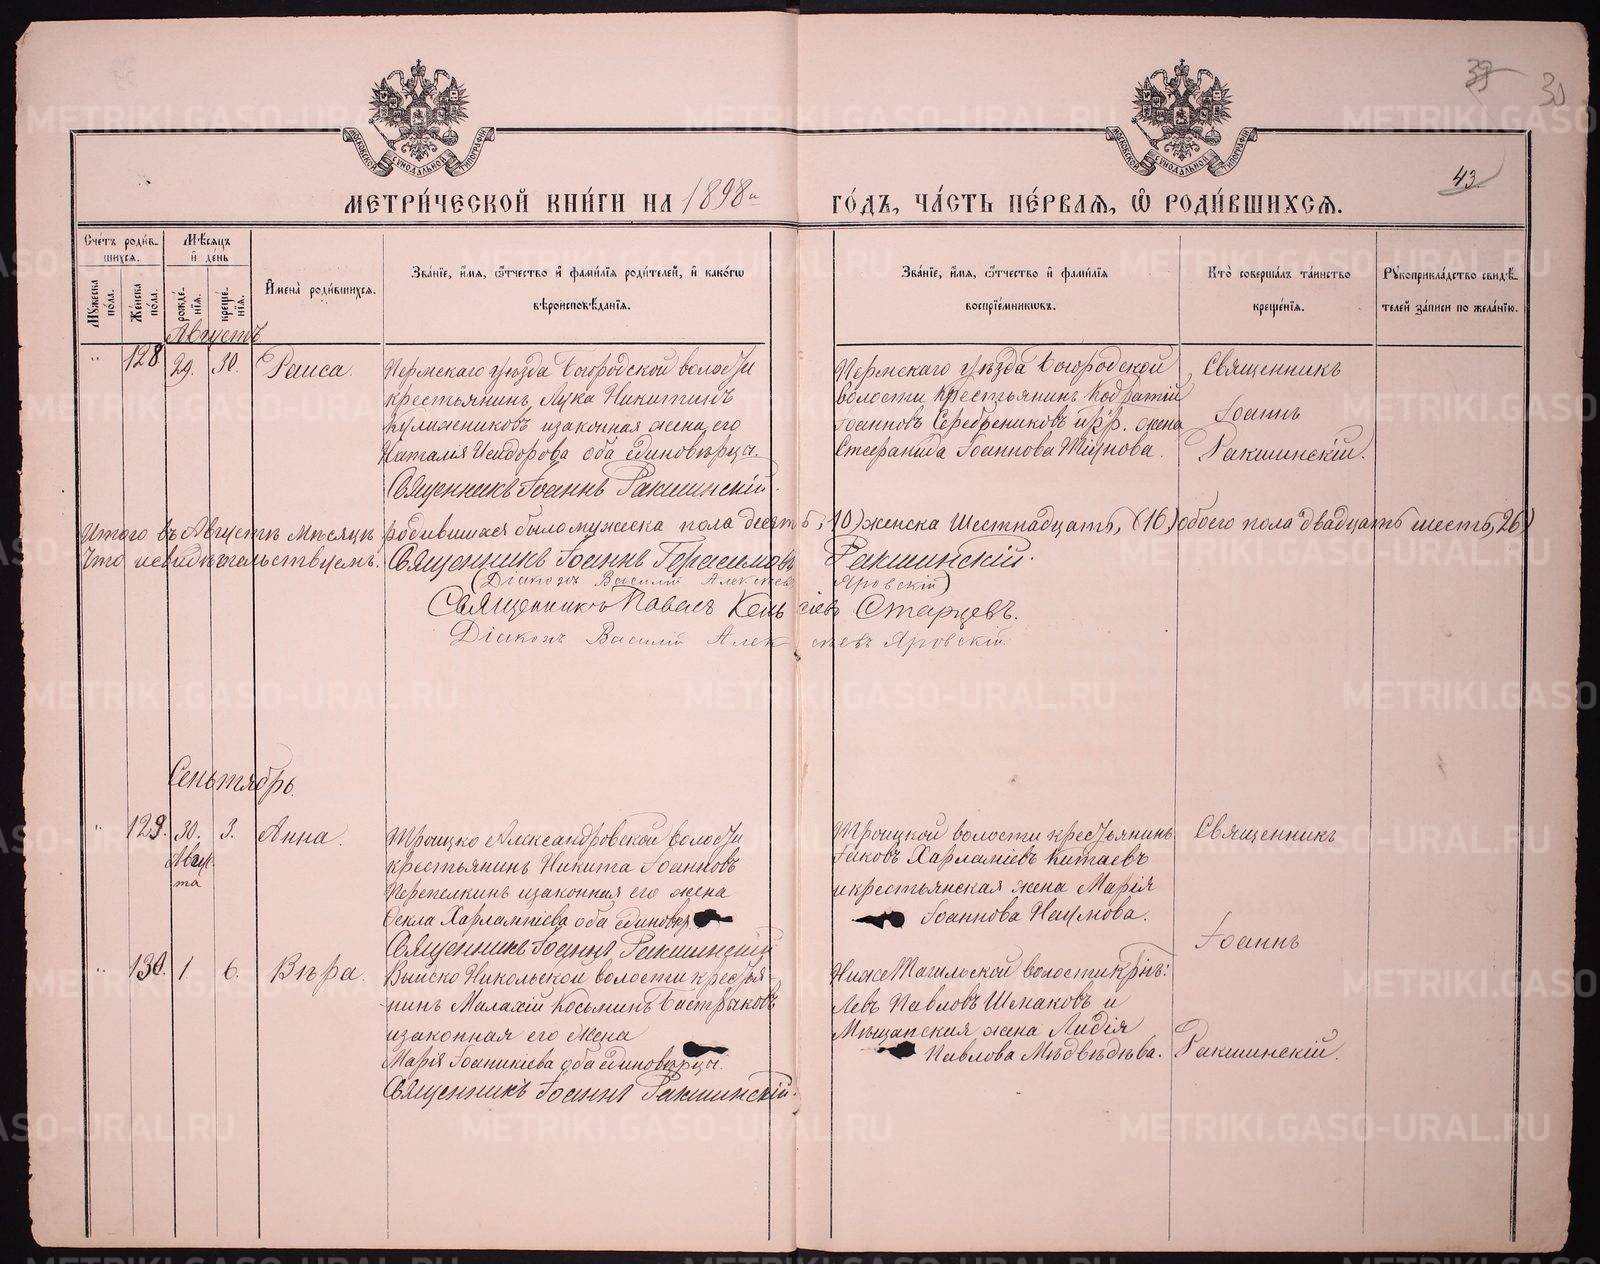 39 30
МОСКОВСКОЙ СѴНОДАЛЬНОЙ ТИПОГРАФІИ
МОСКОВСКОЙ СѴНОДАЛЬНОЙ ТИПОГРАФІИ
43
МЕТРИ́ЧЕСКОЙ КНИ́ГИ НА 1898й ГО́ДЪ, ЧА́СТЬ ПЕ́РВАЯ, Ѡ РОДИ́ВШИХСЯ.
Сче́тъ роди́в-
шихся.
Му́жеска по́ла.
Же́нска по́ла.
Мѣ́сяцъ
и́ де́нь
рожде́нія.
креще́нія.
И́мена̀ роди́вшихся.
Зва́ніе, и́мя, ѻ́тчество и́ фами́лія роди́телей, и́ како́гѡ
вѣроисповѣ́данія.
Зва́ніе, и́мя, ѻ́тчество и́ фами́лія
воспріе́мникѡвъ.
Кто̀ соверша́лъ та́инство
креще́нія.
Рꙋкоприкла́дство свидѣ́-
телей за́писи по жела́нію.
Августъ
" 128 29. 30. Раиса.
Пермскаго уѣзда Богородской волости
крестьянинъ Лука Никитинъ
Кулижниковъ изаконная жена его
Наталія Исидорова оба единовѣрцы.
Священникъ Іоаннъ Ракшинскій.
Пермскаго уѣзда Богородской
волости крестьянинъ Кодратій
Іоанновъ Серебрениковъ и жена
Стефанида Іоаннова Тіунова.
Священникъ
Іоаннъ
Ракшинскій.
Итого въ Августѣ мѣсяцѣ родившихся было мужеска пола десять, (10) женска шестнадцать, (16) обоего пола двадцать шесть, 26)
Что и свидѣтельствуемъ. Священникъ Іоаннъ Герасимовъ Ракшинскій.
(Діаконъ Василій Алексѣевъ Яровскій)
Священникъ Павелъ Старцевъ.
Діаконъ Василій Алексѣевъ Яровскій.
Сеньтябрь.
" 129. 30. Августа 3. Анна.
Троицко Александровской волости
крестьянинъ Никита Іоанновъ
Перепелкинъ изаконная его жена
Ѳекла Харлампіева оба единовѣр
Священникъ Іоаннъ Ракшинскій
Троицкой волости крестьянинъ
Іаковъ Харлампіевъ Китаевъ
и крестьянская жена Марія
Іоаннова Наумова.
Священникъ
Іоаннъ
Ракшинскій.
" 130. 1 6. Вѣра.
Выйско Никольской волости крестья-
нинъ Малахій Косьминъ Бастрыковъ
изаконная его жена
Марія Іоаникіева оба единовѣрцы.
Священникъ Іоаннъ Ракшинскій.
НижеТагильской волости крнъ:
Левъ Павловъ Шмаковъ и
Мѣщанская жена Лидія
Павлова Мѣдвѣдѣва.
METRIKI.GASO-URAL.RU